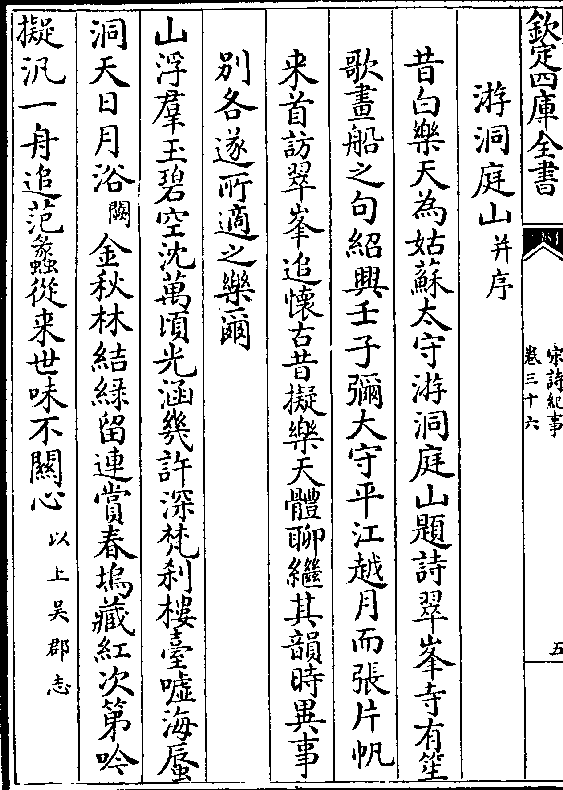 欽定四庫全書
宋詩紀事
卷三十六
五
游洞庭山并序
昔白樂天為姑蘇太守游洞庭山題詩翠峯寺有笙
歌畫船之句紹興壬子彌大守平江越月而張片帆
来首訪翠峯追懷古昔擬樂天體聊繼其韻時異事
別各遂所適之樂爾
山浮羣玉碧空沈萬頃光涵幾許深梵刹樓臺噓海蜃
洞天日月浴闕金秋林結緑留連賞春塢藏紅次第吟
擬汎一舟追范蠡從来世味不關心以上吳郡志